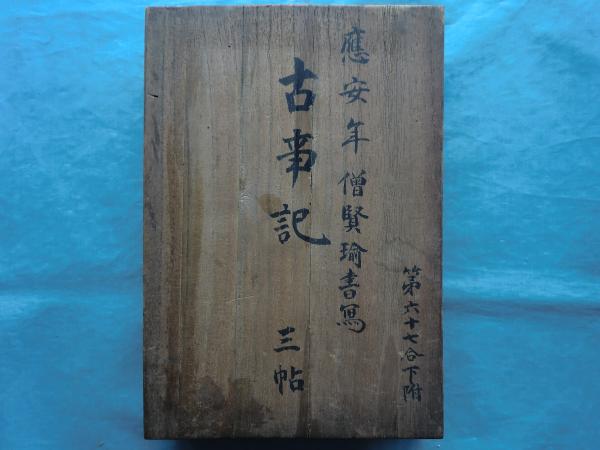 第六十七合下附
應安年 僧賢瑜書寫
古事記 三帖